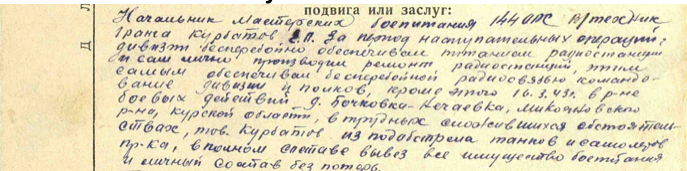 подвига или заслуг:
Начальник мастерских боепитания 144 ОРС В/техник
1 ранга Курбатов за период наступательных операций
дивизии бесперебойно обеспечивал питанием радиостанции
и сам лично производил ремонт радиостанций этим
самым обеспечивал бесперебойной радиосвязью командо-
вание дивизии и полков, кроме этого 16.3.43г. в р-не
боевых действий д. Бочковка-Нечаевка, Микояновского
р-на, Курской области, в трудных сложившихся обстоятель-
ствах, тов. Курбатов из под обстрела танков и самолетов
пр-ка, в полном составе вывез все имущество боепитания
и личный состав без потерь.
Д
Л